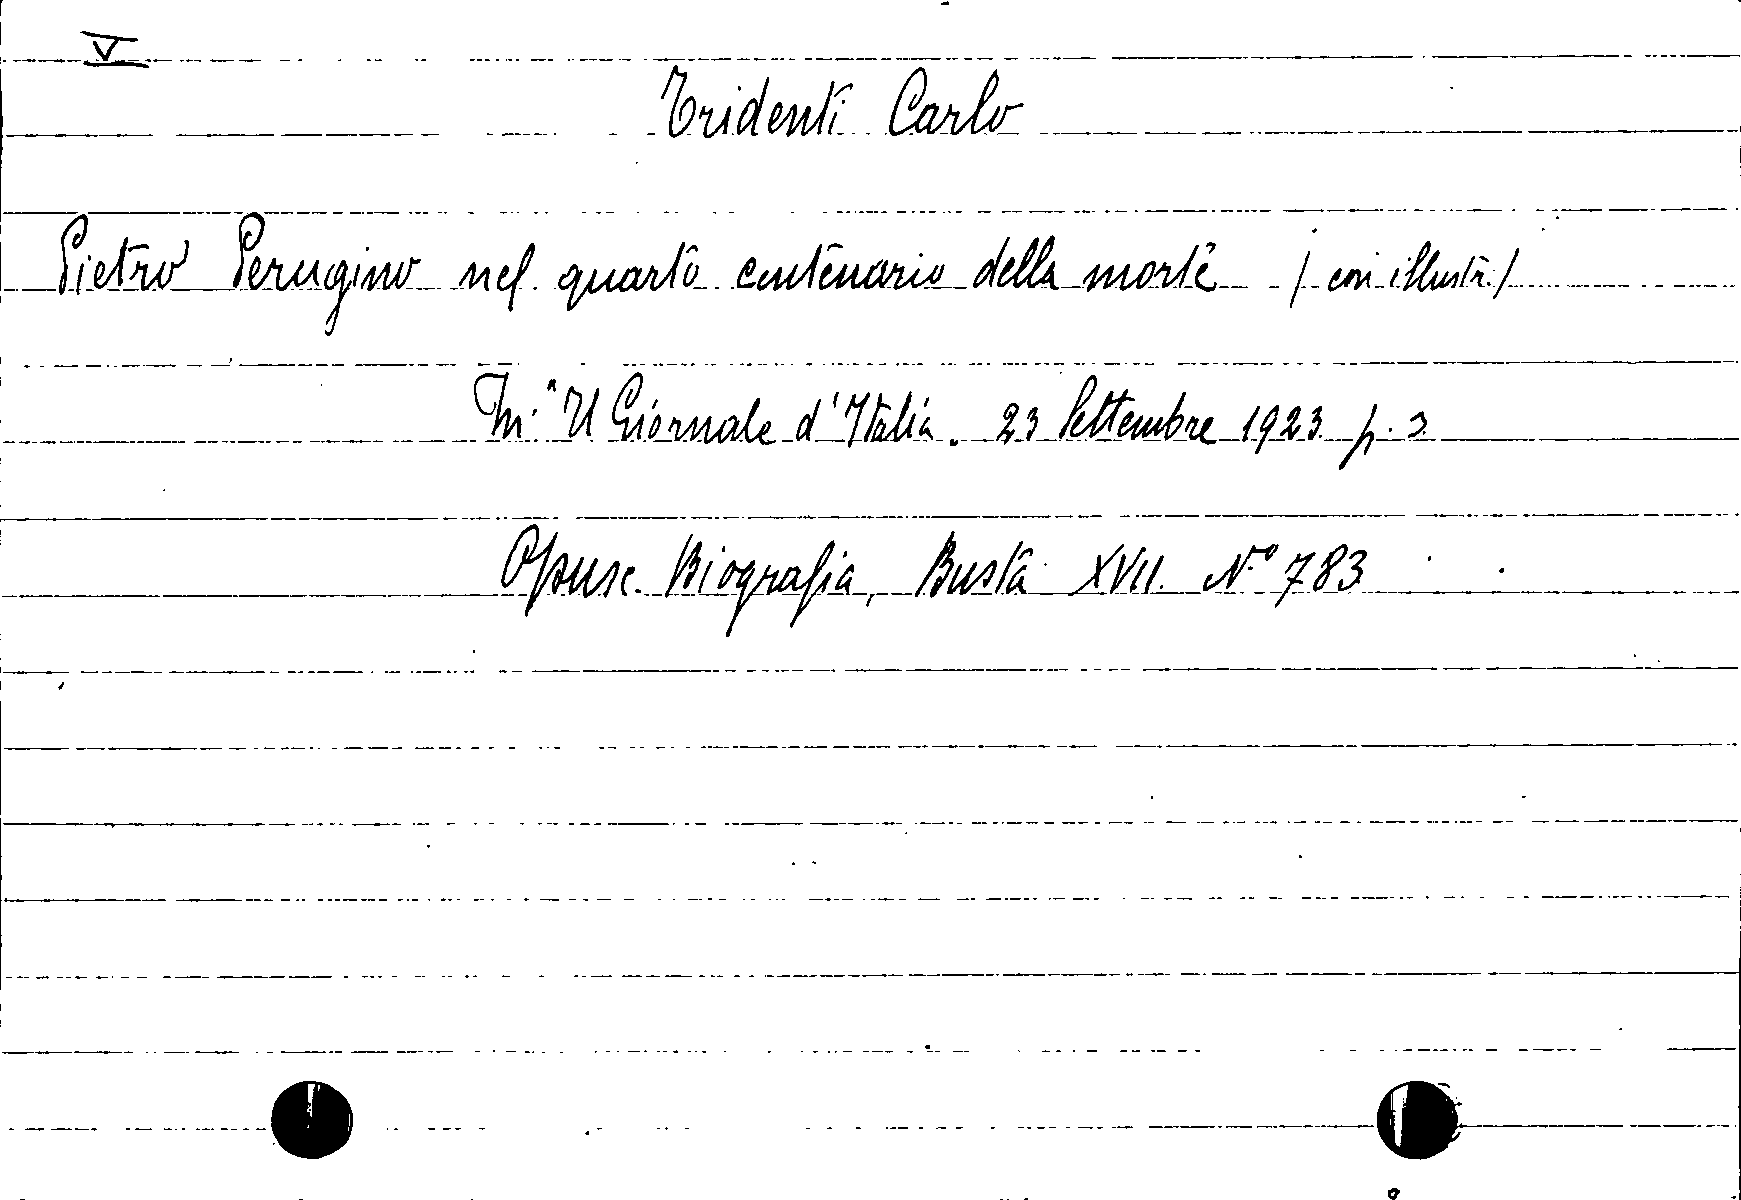 V
Tridenti Carlo
Pietro Perugino nel quarto centenario della morte /con illustr./
In: "Il Giornale d'Italia. 23 Settembre 1923 p. 3
Opusc. Biografia, Busta XVII. N.° 783